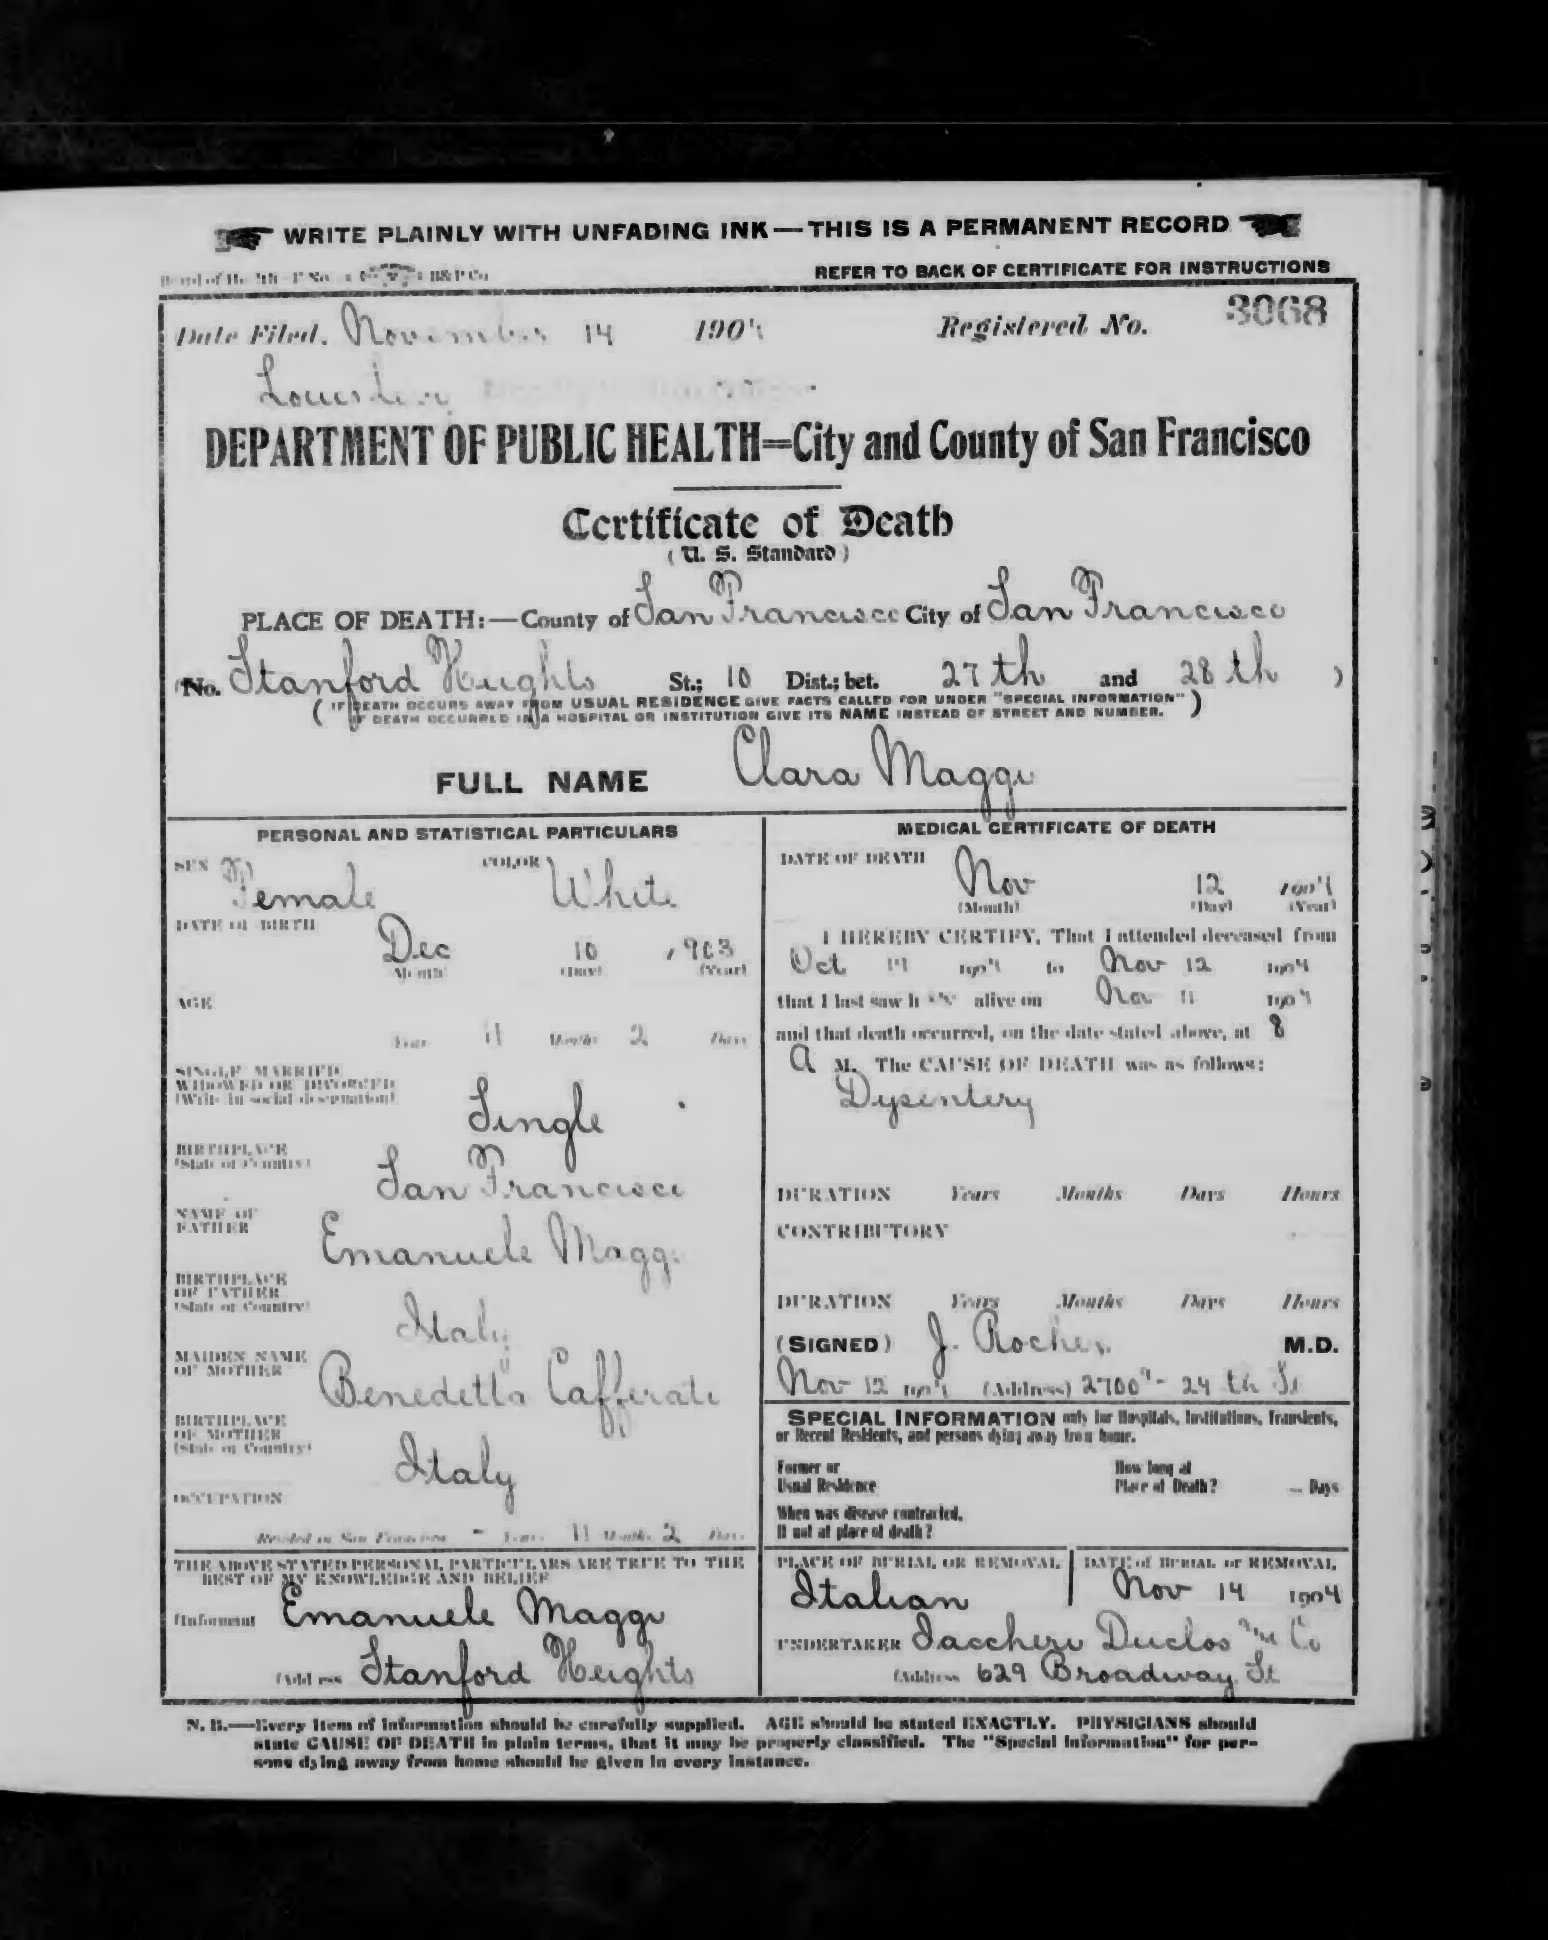 WRITE PLAINLY WITH UNFADING INK—THIS IS A PERMANENT RECORD
Board of Health B&P Co
REFER TO BACK OF CERTIFICATE FOR INSTRUCTIONS
Date Filed, November 14 1904 Registered No. 3068
Louis Levy
DEPARTMENT OF PUBLIC HEALTH=City and County of San Francisco
Certificate of Death
(U. S. Standard)
PLACE OF DEATH:—County of San Francisco City of San Francisco
(No. Stanford Heights St.; 10 Dist.; bet. 27th and 28th )
(IF DEATH OCCURS AWAY FROM USUAL RESIDENCE GIVE FACTS CALLED FOR UNDER "SPECIAL INFORMATION"
IF DEATH OCCURRED IN A HOSPITAL OR INSTITUTION GIVE ITS NAME INSTEAD OF STREET AND NUMBER.)
FULL NAME Clara Maggi
PERSONAL AND STATISTICAL PARTICULARS
SEX Female COLOR White
DATE OF BIRTH
Dec 10 1903
(Month) (Day) (Year)
AGE
Years 11 Months 2 Days
SINGLE, MARRIED,
WIDOWED OR DIVORCED
(Write in social designation)
Single
BIRTHPLACE
(State or Country)
San Francisco
NAME OF
FATHER
Emanuele Maggi
BIRTHPLACE
OF FATHER
(State or Country)
Italy
MAIDEN NAME
OF MOTHER
Benedetta Cafferati
BIRTHPLACE
OF MOTHER
(State or Country)
Italy
OCCUPATION
Resided in San Francisco - Years 11 Months 2 Days
THE ABOVE STATED PERSONAL PARTICULARS ARE TRUE TO THE
BEST OF MY KNOWLEDGE AND BELIEF
(Informant Emanuele Maggi
(Address Stanford Heights
MEDICAL CERTIFICATE OF DEATH
DATE OF DEATH
Nov 12 1904
(Month) (Day) (Year)
I HEREBY CERTIFY, That I attended deceased from
Oct 1904 to Nov 12 1904
that I last saw her alive on Nov 11 1904
and that death occurred, on the date stated above, at 8
A M. The CAUSE OF DEATH was as follows:
Dysentery
DURATION Years Months Days Hours
CONTRIBUTORY
DURATION Years Months Days Hours
(SIGNED) J. Rocher M.D.
Nov 12 1904 (Address) 2700 - 24th St
SPECIAL INFORMATION only for Hospitals, Institutions, Transients,
or Recent Residents, and persons dying away from home.
Former or
Usual Residence
How long at
Place of Death? Days
When was disease contracted,
If not at place of death?
PLACE OF BURIAL OR REMOVAL
Italian
DATE of BURIAL or REMOVAL
Nov 14 1904
UNDERTAKER Iaccheri Duclos and Co
(Address 629 Broadway St
N. B.—Every item of information should be carefully supplied. AGE should be stated EXACTLY. PHYSICIANS should
state CAUSE OF DEATH in plain terms, that it may be properly classified. The "Special Information" for per-
sons dying away from home should be given in every instance.